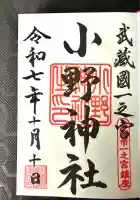 武蔵國一之宮
小野神社
令和七年十月十日